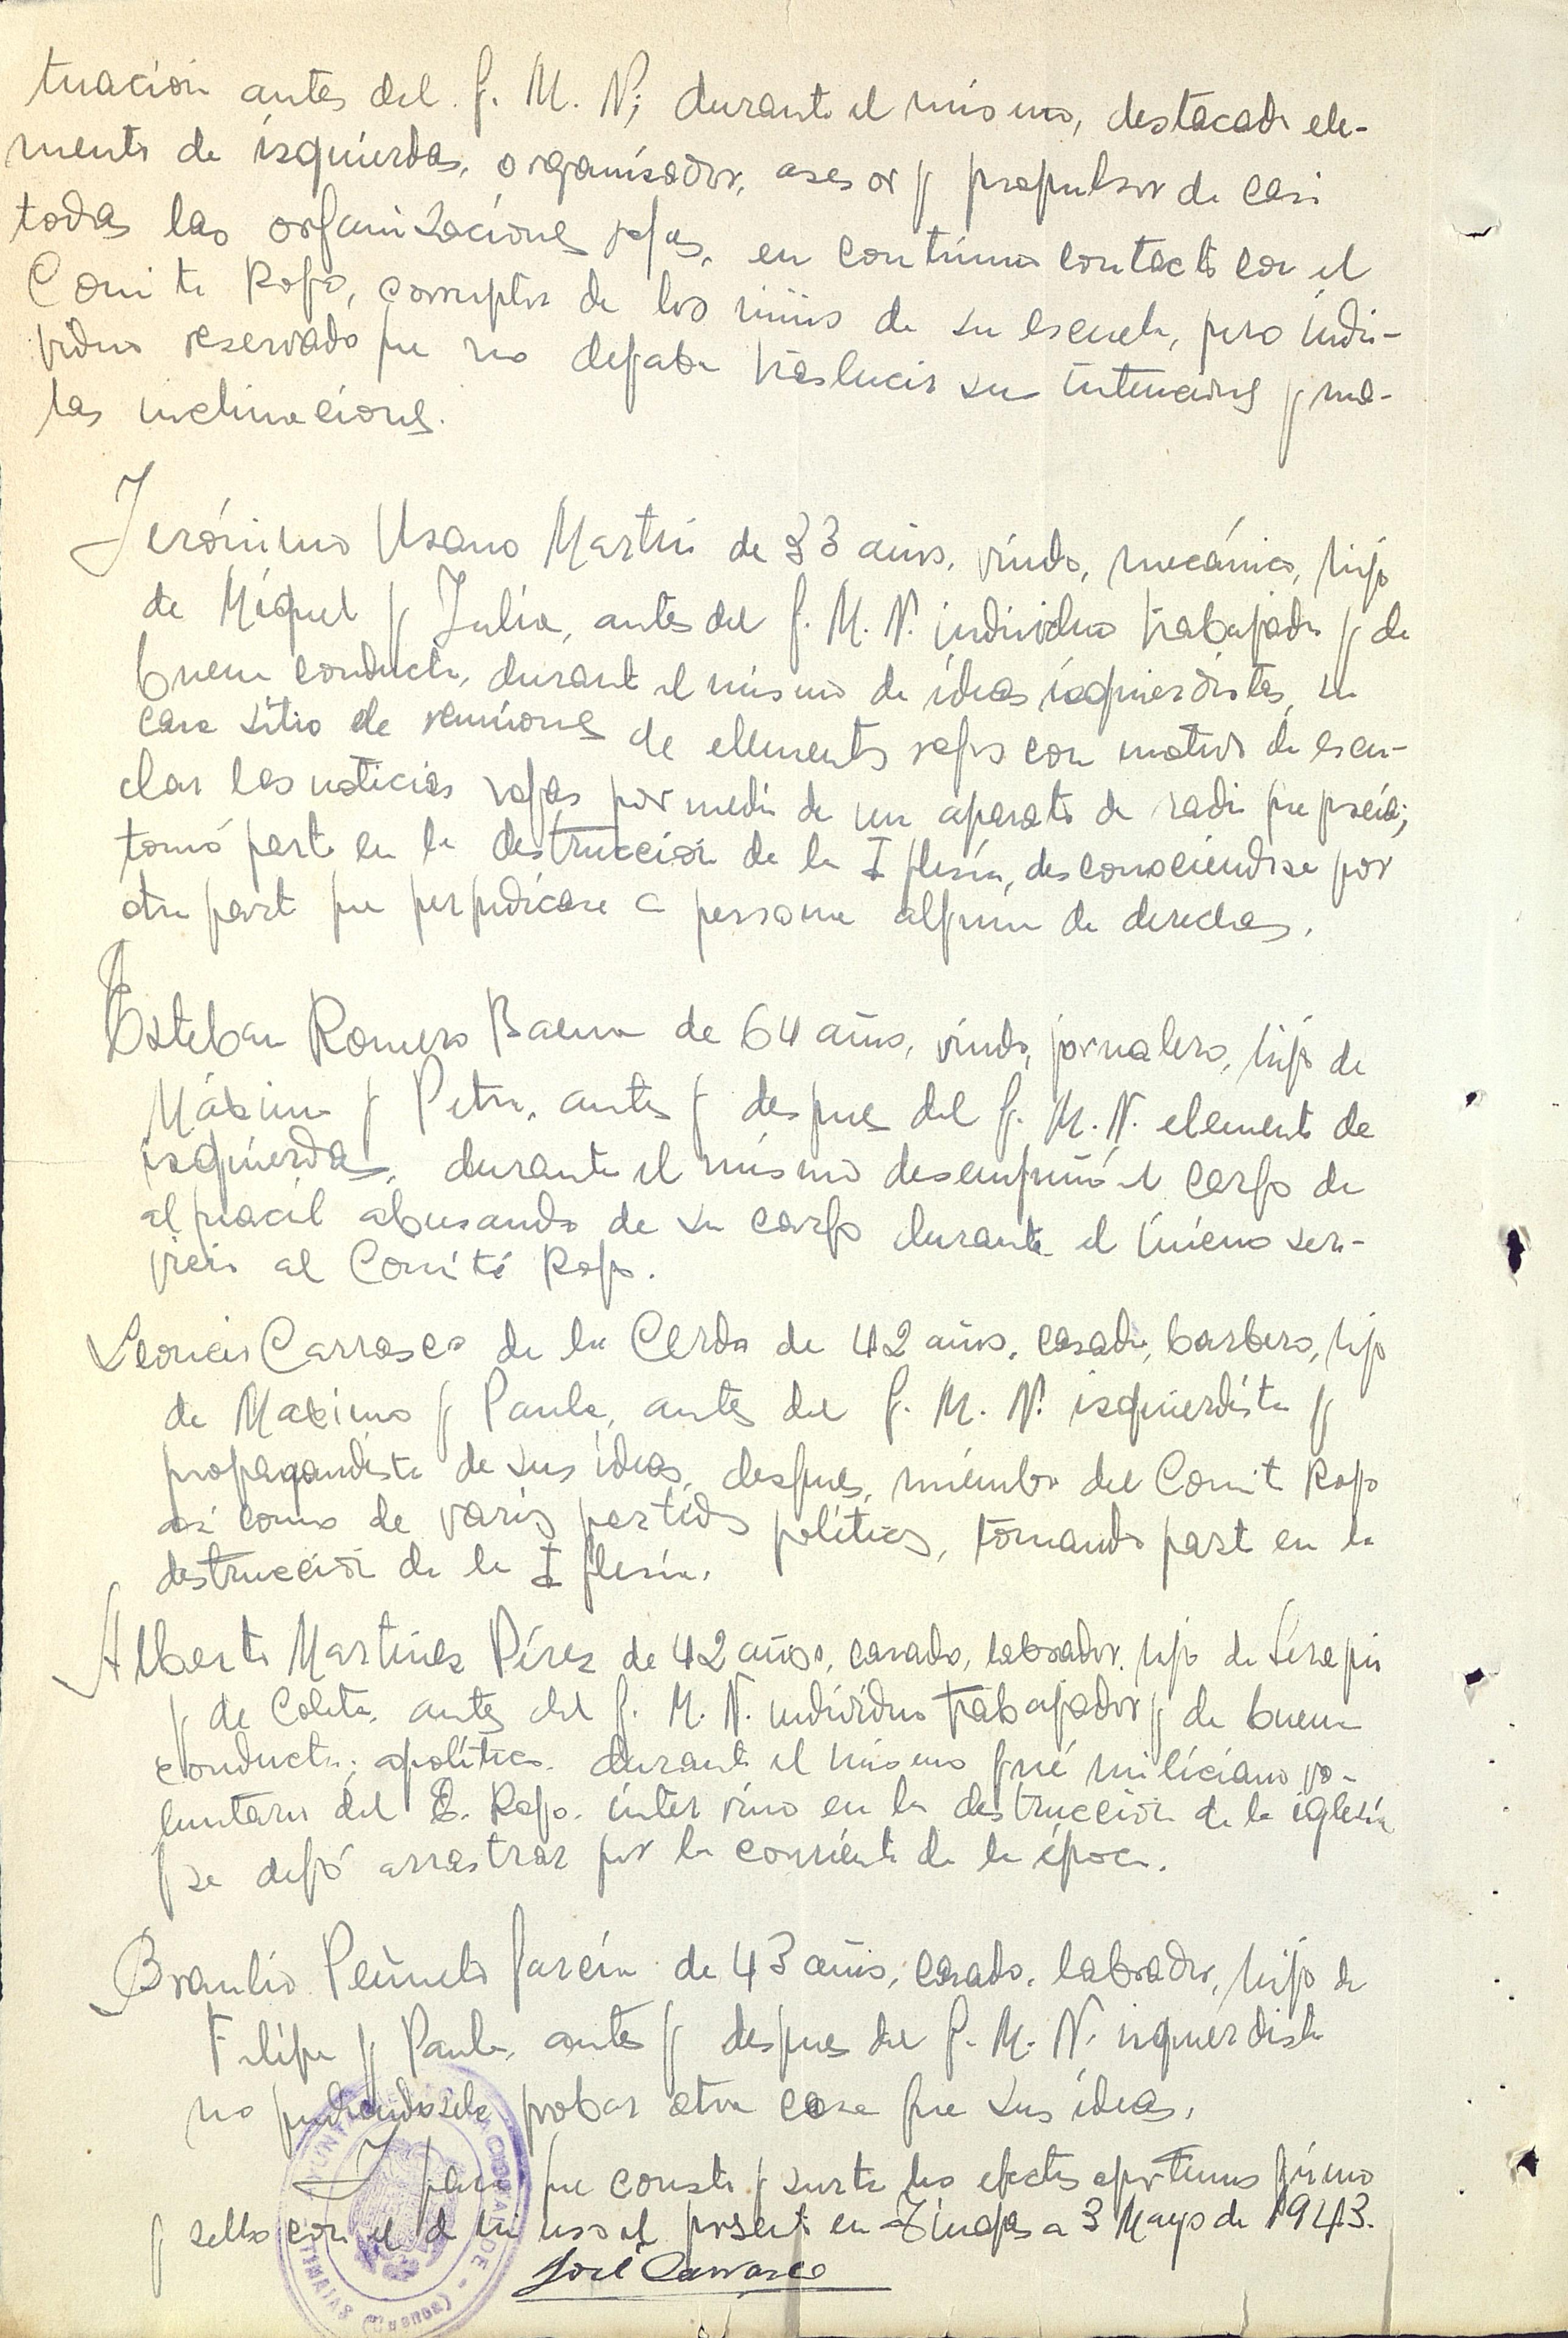 tuación antes del G. M. N; durante el mismo, destacado ele-
mento de izquierdas, organizador, asesor y propulsor de casi
todas las organizaciones rojas, en continuo contacto con el
Comite Rojo, corruptor de los niños de su escuela, pero indi-
viduo reservado que no dejaba traslucir sus intenciones y ma-
las inclinaciones.
Jerónimo Usano Martín de 33 años, viudo, mecánico, hijo
de Miguel y Julia, antes del G. M. N. individuo trabajador y de
buena conducta, durante el mismo de ideas izquierdistas, su
casa sitio de reuniones de elementos rojos con motivo de escu-
char las noticias rojas por medio de un aparato de radio que poseía;
tomó parte en la destrucción de la Iglesia, desconociendose por
otra parte que perjudicase a persona alguna de derechas.
Esteban Romero Baena de 64 años, viudo, jornalero, hijo de
Máximo y Petra, antes y despues del G. M. N. elemento de
izquierdas, durante el mismo desempeñó el cargo de
alguacil abusando de su cargo durante el tiempo ser-
vicio al Comité Rojo.
Leoncio Carrasco de la Cerda de 42 años, casado, barbero, hijo
de Maximo y Paula, antes del G. M. N. izquierdista y
propagandista de sus ideas, despues, miembro del Comite Rojo
asi como de varios partidos politicos, tomando parte en la
destrucción de la Iglesia.
Alberto Martinez Pérez de 42 años, casado, labrador, hijo de Serapio
y de Coleta, antes del G. M. N. individuo trabajador y de buena
conducta; apolítico. durante el mismo fué miliciano vo-
luntario del E. Rojo. intervino en la destrucción de la iglesia
y se dejó arrastrar por la corriente de la época.
Braulio Peñuelo García de 43 años, casado, labrador, hijo de
Felipe y Paula, antes y despues del G. M. N. izquierdista
no pudiendosele probar otra cosa que sus ideas.
Y para que conste y surta los efectos oportunos firmo
y sello con el de mi uso el presente en Tinajas a 3 Mayo de 1943.
José Carrasco
TINAJAS (Cuenca)